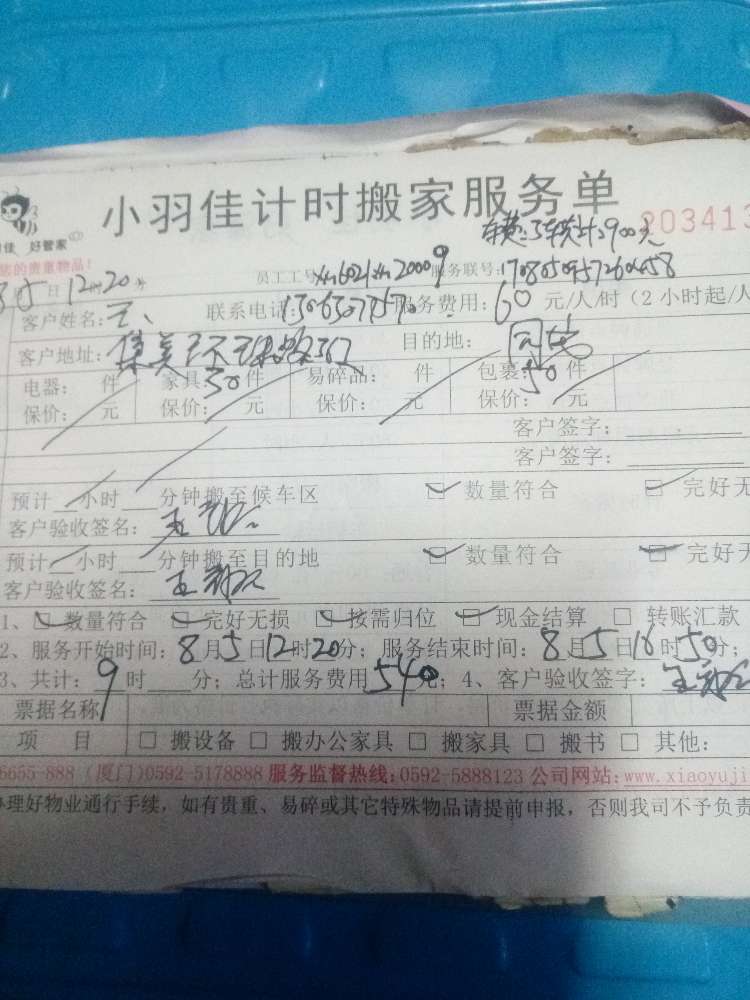 小羽佳计时搬家服务单
佳 好管家
203413
您的贵重物品!
5日12时20分 员工工号: 服务联号:
客户姓名:王 联系电话: 服务费用:60元/人/时(2小时起/人
客户地址:集美 目的地:同安
电器: 件 家具50件 易碎品: 件 包裹50件
保价: 元 保价: 元 保价: 元 保价: 元
客户签字:
客户签字:
预计 小时 分钟搬至候车区 数量符合 完好无
客户验收签名:王
预计 小时 分钟搬至目的地 数量符合 完好无
客户验收签名:王
1、数量符合 完好无损 按需归位 现金结算 转账汇款
2、服务开始时间:8月5日12时20分; 服务结束时间:8月5日16时50分;
3、共计:9时 分; 总计服务费用540元; 4、客户验收签字:王
票据名称 票据金额
项 目 搬设备 搬办公家具 搬家具 搬书 其他:
6655-888 (厦门)0592-5178888 服务监督热线:0592-5888123 公司网站:www.xiaoyuji
办理好物业通行手续, 如有贵重、易碎或其它特殊物品请提前申报, 否则我司不予负责